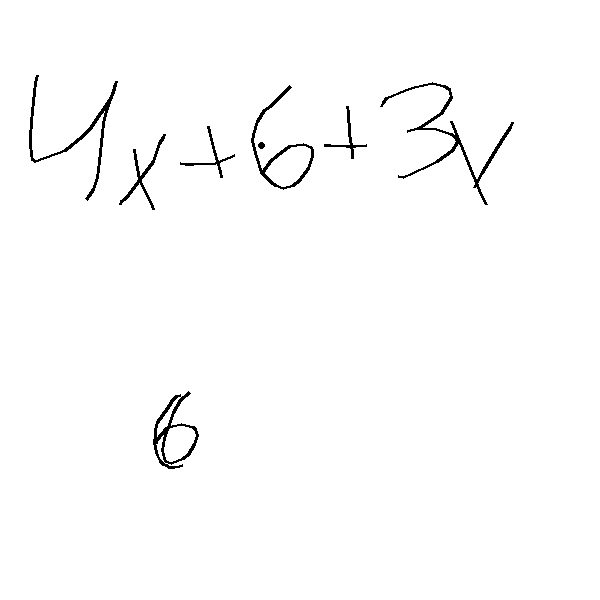 4x+6+3y
6